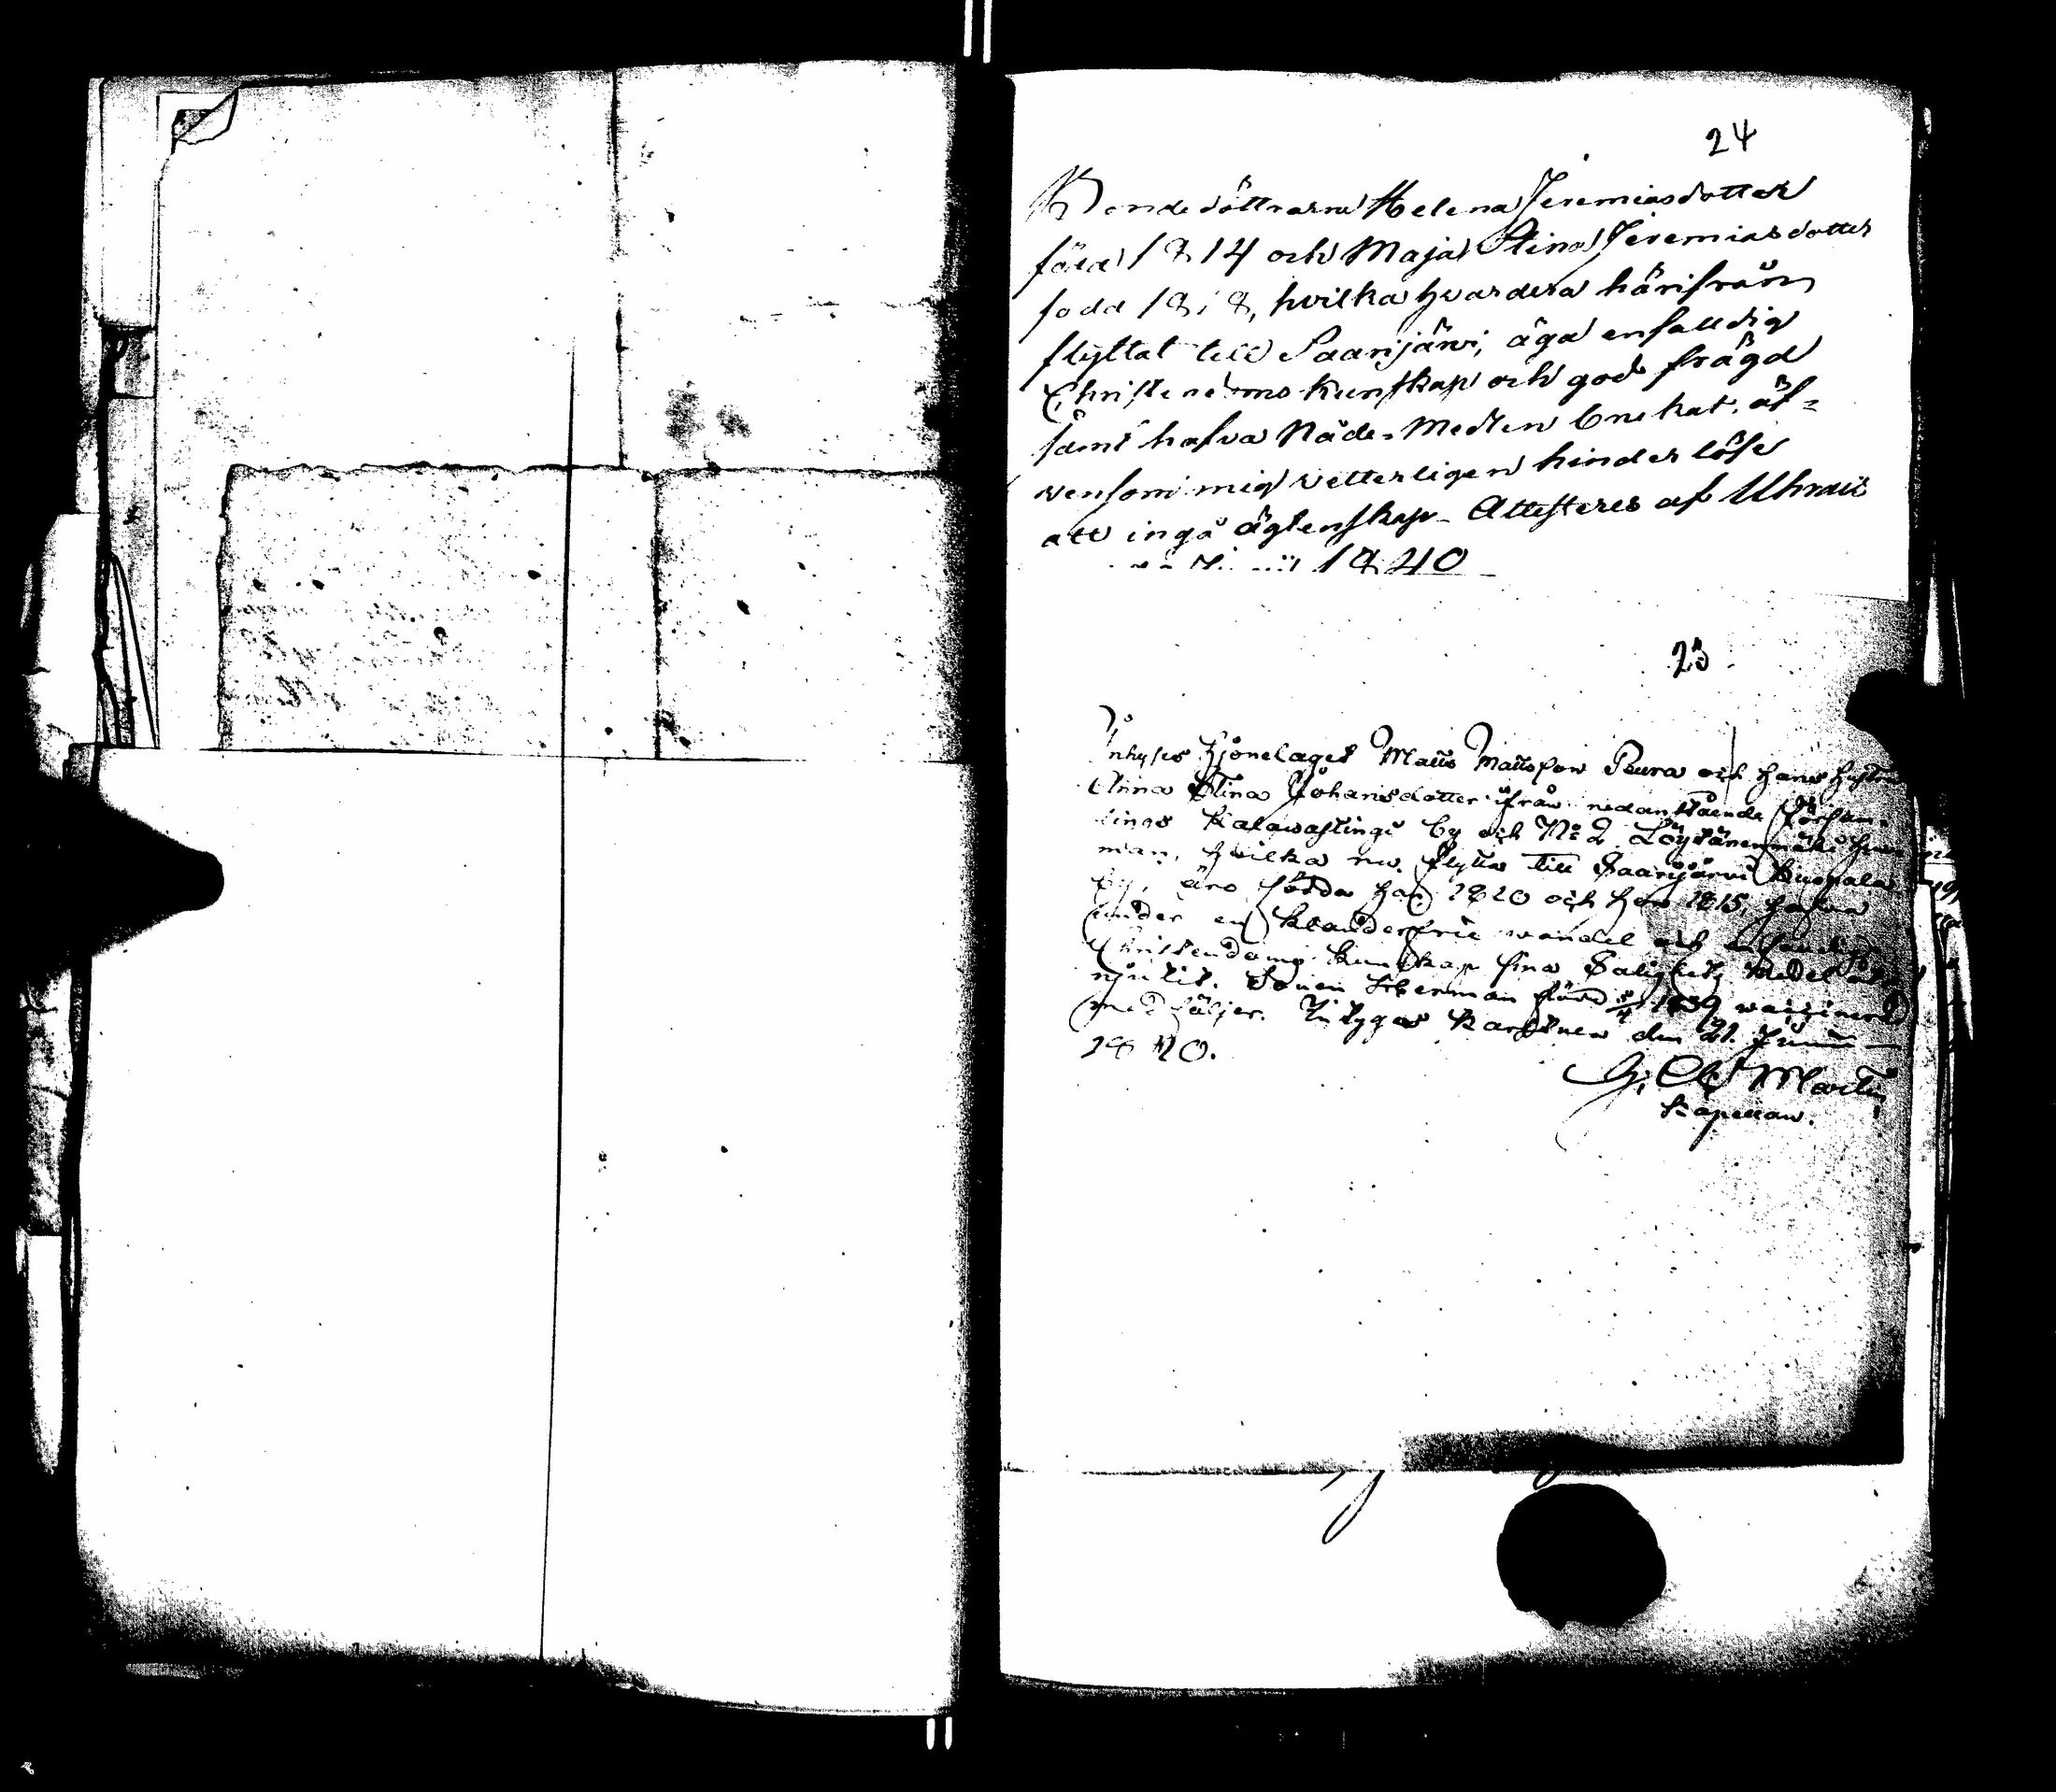 24
Bonde döttrarne Helena Jeremiasdotter
född 1814 och Maja Stina Jeremiasdotter
född 1818, hvilka hvardera härifrån
flyttat till Saarijärvi, äga enfalldig
Christendoms kunskap och god frägd
samt hafva Nåde-Medlen brukat, äf-
vensom mig vetterligen hinderlöse
att ingå ägtenskap. Attesteras af Uhrais
1840
23
Inhyses Hjonelaget Matts Mattsson Peura och hans hustru
Anna Stina Johansdotter ifrån nedanstående Försam-
lings Kalawastinge by och No 2 Löytänenmäki
man, hvilka nu flytta till Saarijärvi
by, äro födda han 1820 och hon 1815, hafva
under en klanderfri wandel och enfaldig
Christendoms kunskap sina Salighets Medel
njutit. Sonen Herman född 5/4 1839
medföljer. Intygas Karstula den 21. Junii
1840.
Kapellan.